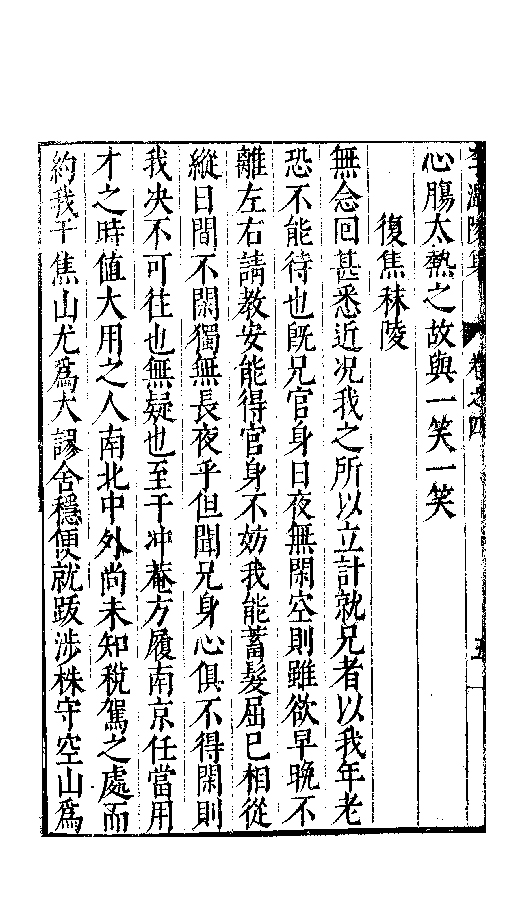 李溫陵集 卷之四 五
心腸太熱之故與一笑一笑
復焦秣陵
無念回甚悉近况我之所以立計就兄者以我年老
恐不能待也旣兄官身日夜無閑空則雖欲早晚不
離左右請教安能得官身不妨我能蓄髮屈已相從
縱日間不閑獨無長夜乎但聞兄身心俱不得閑則
我决不可往也無疑也至于冲菴方履南京任當用
才之時值大用之人南北中外尚未知稅駕之處而
約我于焦山尤爲大謬舍穩便就跋涉株守空山爲